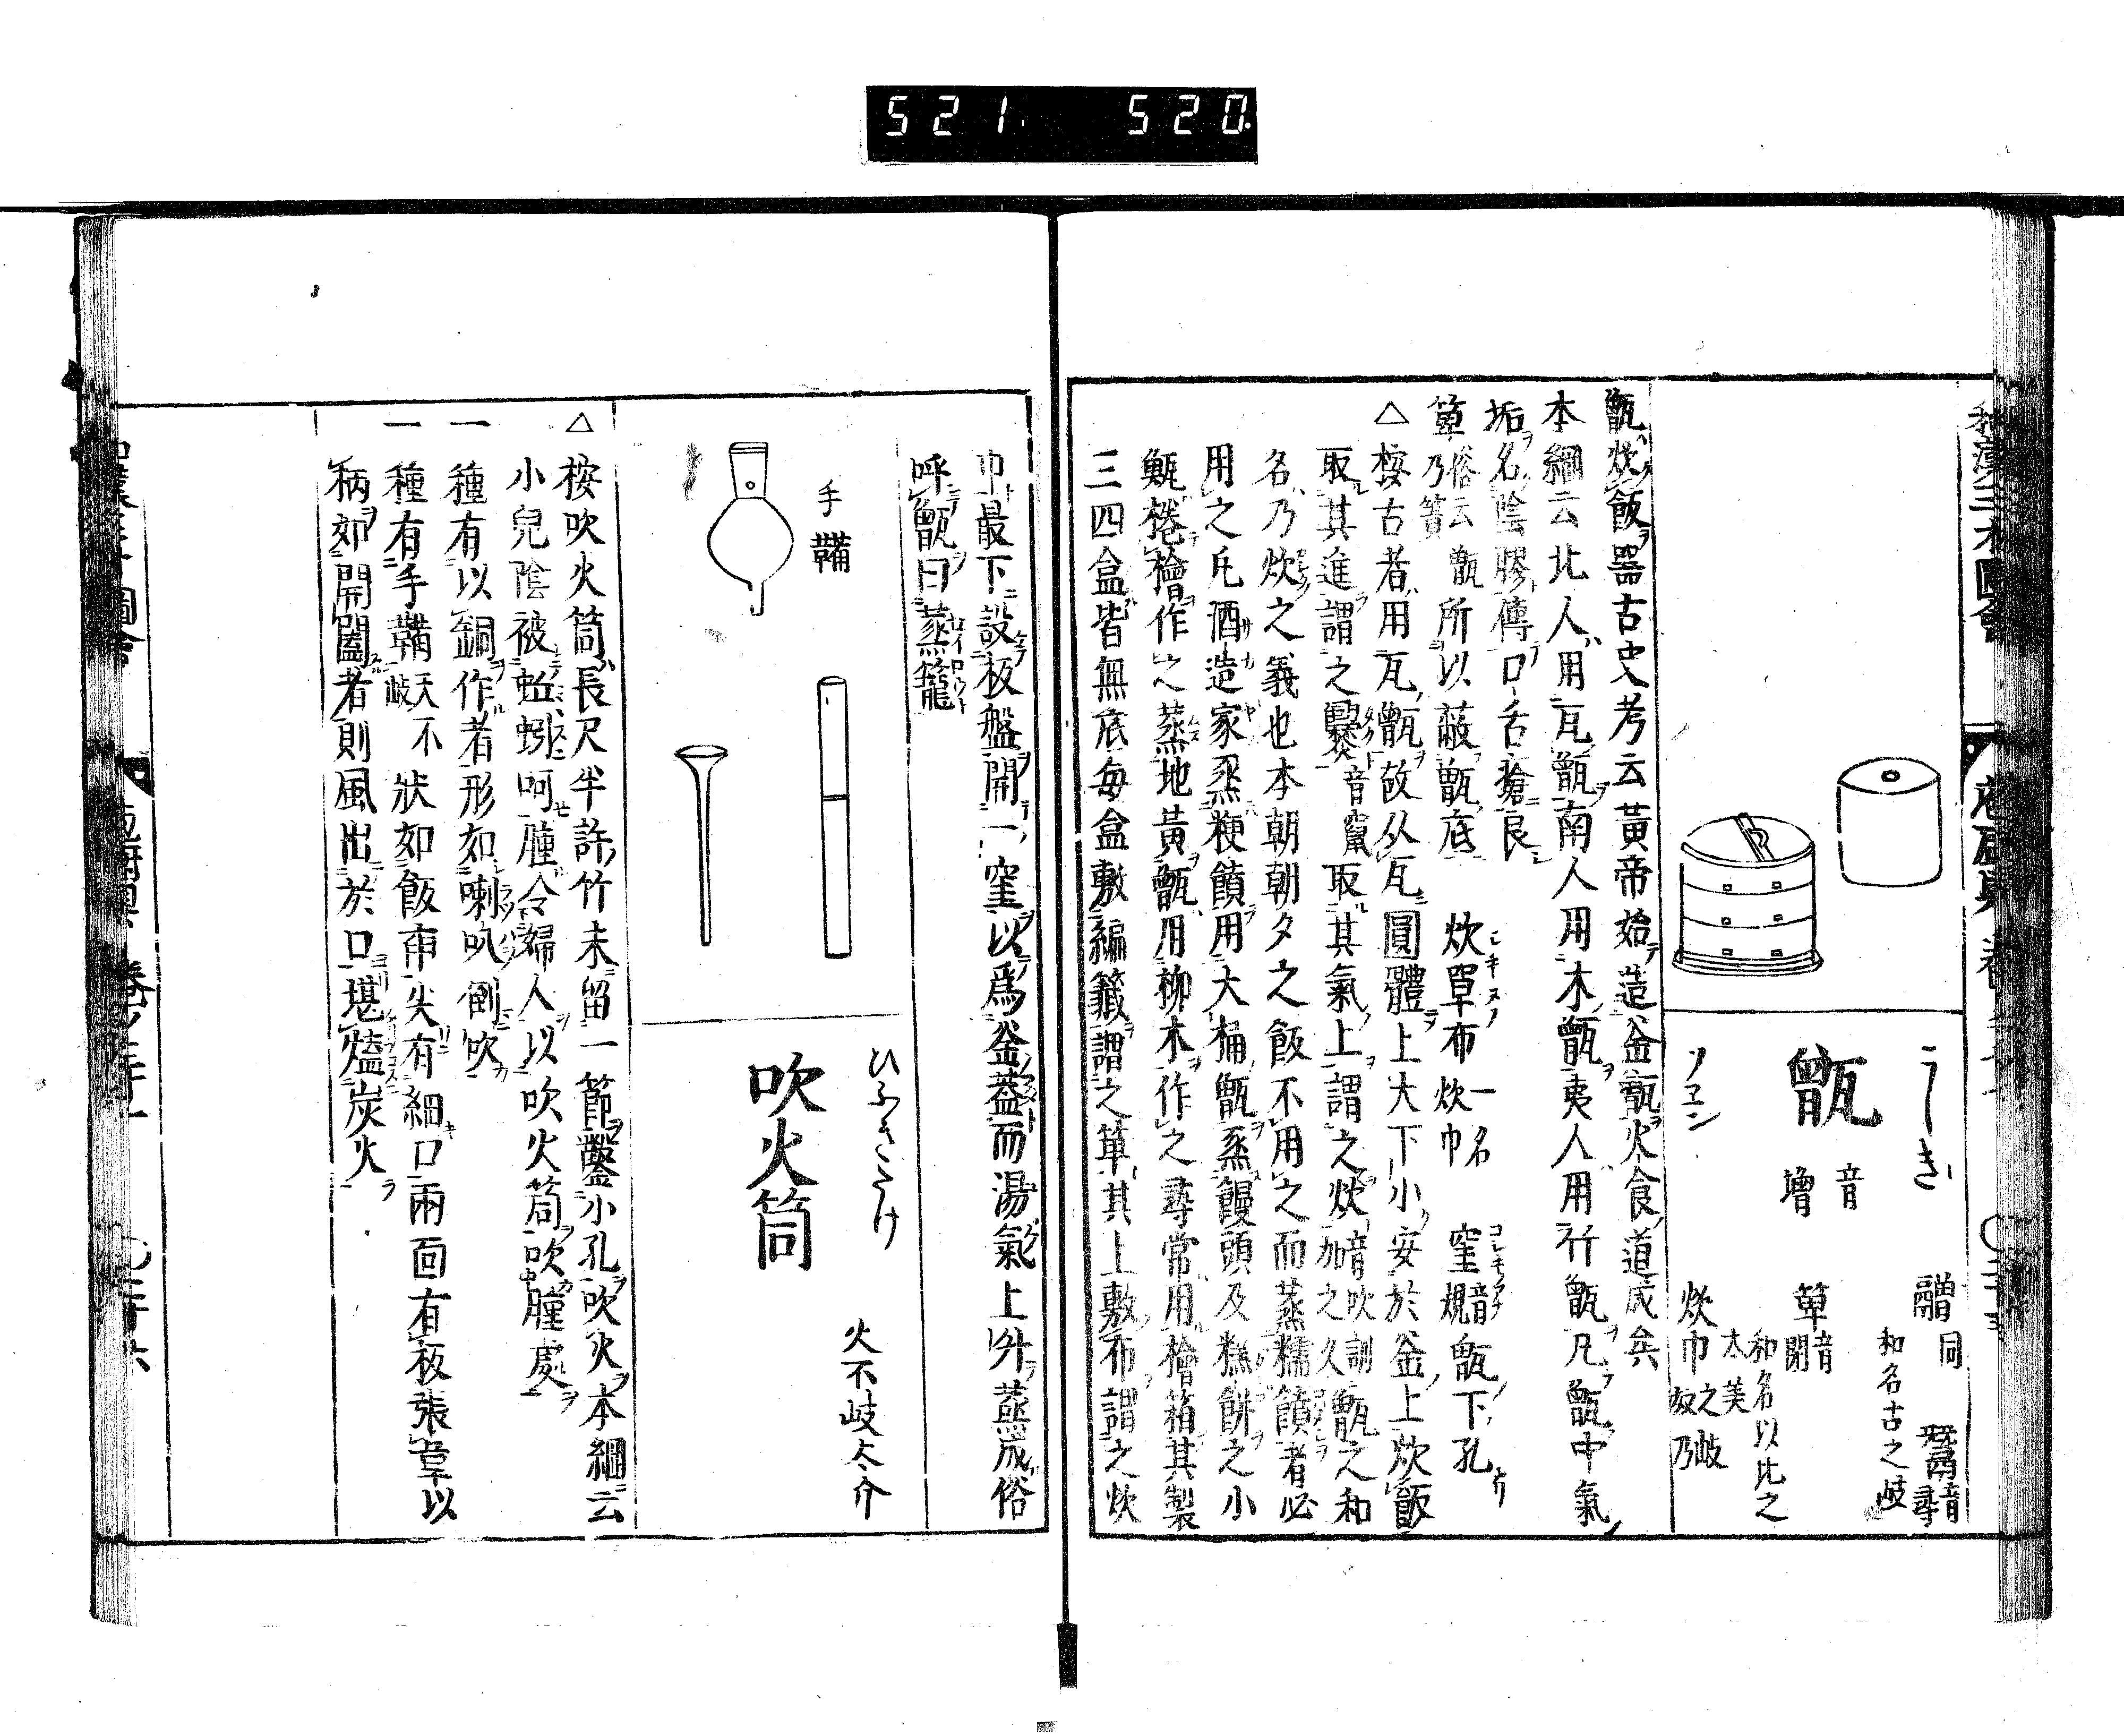 521 520
和漢三才圖會
庖厨具
こしき
甑
音
増
ツエン
䰝同
和名古之岐
鬵音尋
箄音閉
和名以比之
太美
炊巾之岐
奴乃
甑炊飯器古史考云黃帝始造釜甑火食道成矣
本綱云北人用瓦甑南人用木甑夷人用竹甑凡甑中氣
垢名陰膠傳口舌瘡良
箄俗云甑乃簀所以蔽甑底 炊單布一名炊巾 窐音規甑下孔
△按古者用瓦甑故从瓦圓體上大下小安於釜上炊飯
取其進謂之爨音竄取其氣上謂之炊音吹訓加之久甑之和
名乃炊之義也本朝朝夕之飯不用之而蒸糯饙者必
用之凡酒造家烝粳饙用大桶甑烝饅頭及糕餅之小
甑捲檜作之蒸地黃甑用柳木作之尋常用檜箱其製
三四盒皆無底每盒敷編籤謂之箄其上敷布謂之炊
巾最下設板盤開一窐以爲釜蓋而湯氣上升蒸成俗
呼甑曰蒸籠
手鞴
ひふきたけ
吹火筒
火不岐太介
△按吹火筒長尺半許竹末留一節鑿小孔吹火本綱云
小兒陰被蚯蚓呵腫令婦人以吹火筒吹腫處
一種有以銅作者形如喇叭倒吹
一種有手鞴天不岐狀如飯臿尖有細口兩面有板張韋以
柄郊開闔者則風出於口堪熆炭火